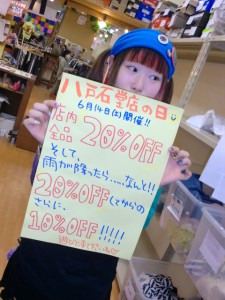 八戸石堂店の日
6月14日(日)開催!!
店内
全品
20%OFF
そして、
雨が降ったら……なんと!!
20%OFFしてからの
さらに、
10%OFF!!!!!